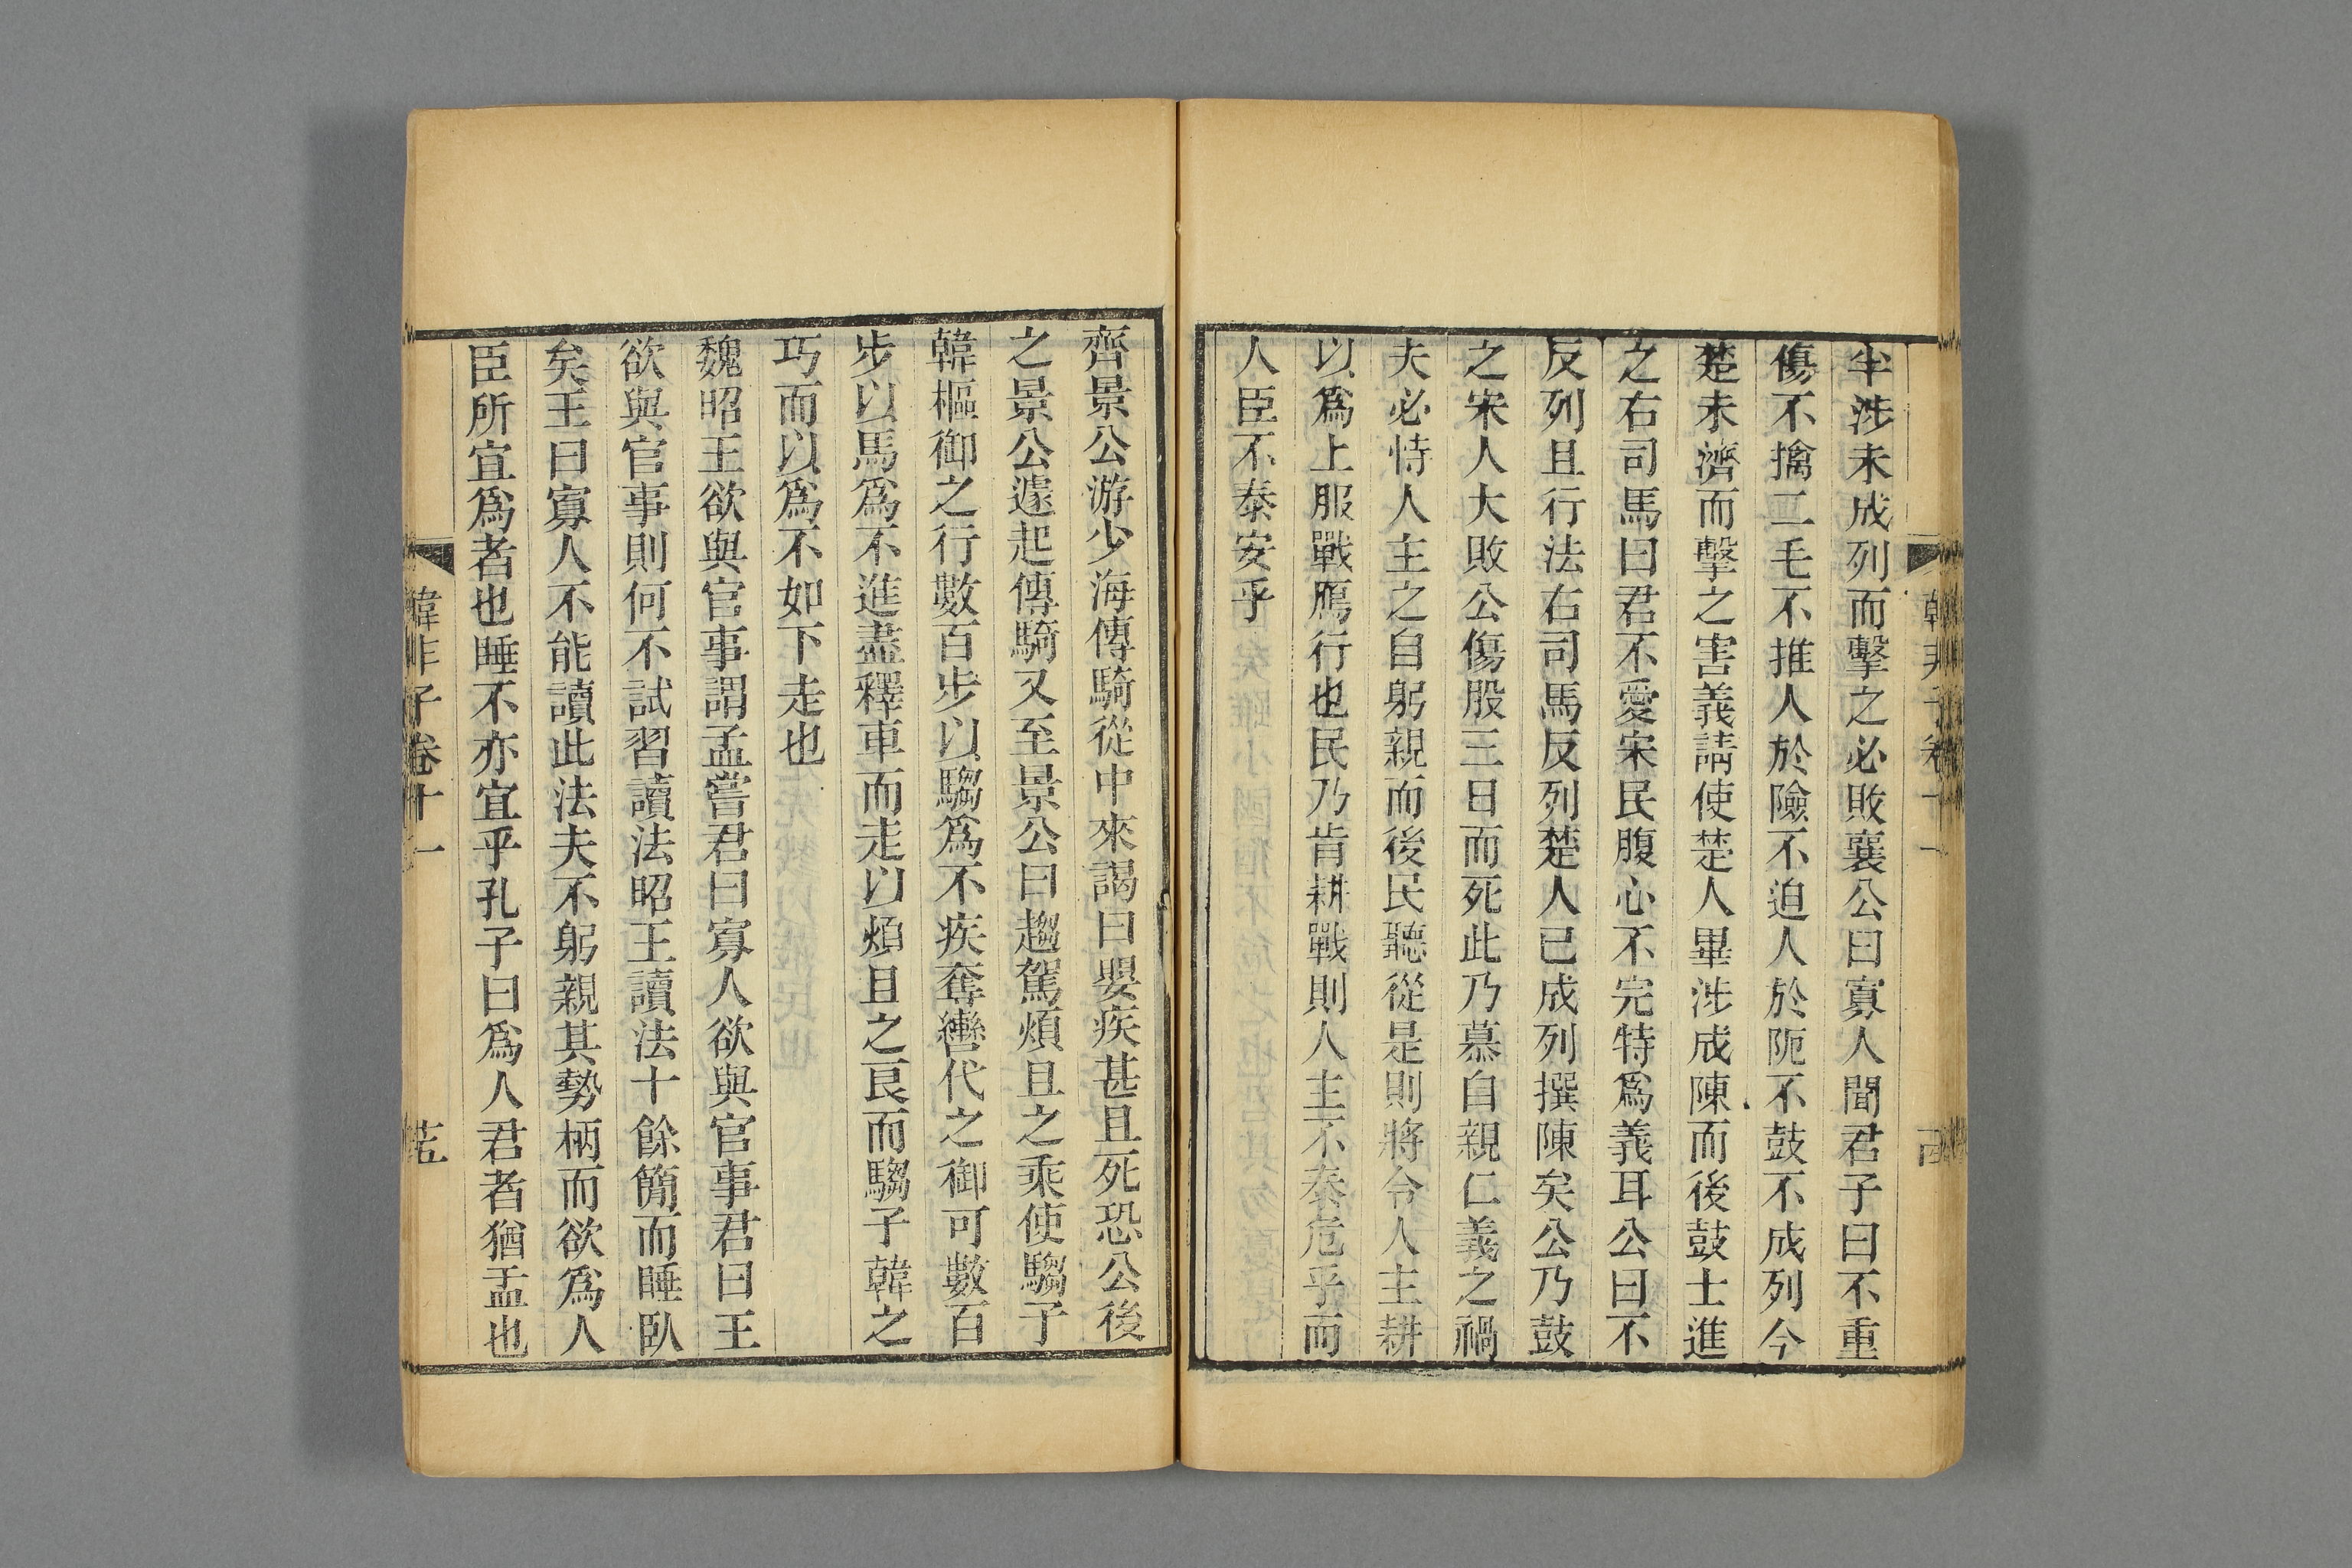 半涉未成列而擊之必敗襄公曰寡人聞君子曰不重
傷不擒二毛不推人於險不迫人於阨不鼓不成列今
楚未濟而擊之害義請使楚人畢涉成陳而後鼓士進
之右司馬曰君不愛宋民腹心不完特爲義耳公曰不
反列且行法右司馬反列楚人已成列撰陳矣公乃鼓
之宋人大敗公傷股三日而死此乃慕自親仁義之禍
夫必恃人主之自躬親而後民聽從是則將令人主耕
以爲上服戰鴈行也民乃肯耕戰則人主不泰危乎而
人臣不泰安乎
齊景公游少海傳騎從中來謁曰嬰疾甚且死恐公後
之景公遽起傳騎又至景公曰趨駕煩且之乘使騶子
韓樞御之行數百步以騶爲不疾奪轡代之御可數百
步以馬爲不進盡釋車而走以煩且之良而騶子韓之
巧而以爲不如下走也
魏昭王欲與官事謂孟嘗君曰寡人欲與官事君曰王
欲與官事則何不試習讀法昭王讀法十餘簡而睡臥
矣王曰寡人不能讀此法夫不躬親其勢柄而欲爲人
臣所宜爲者也睡不亦宜乎孔子曰爲人君者猶盂也
韓非子卷十一